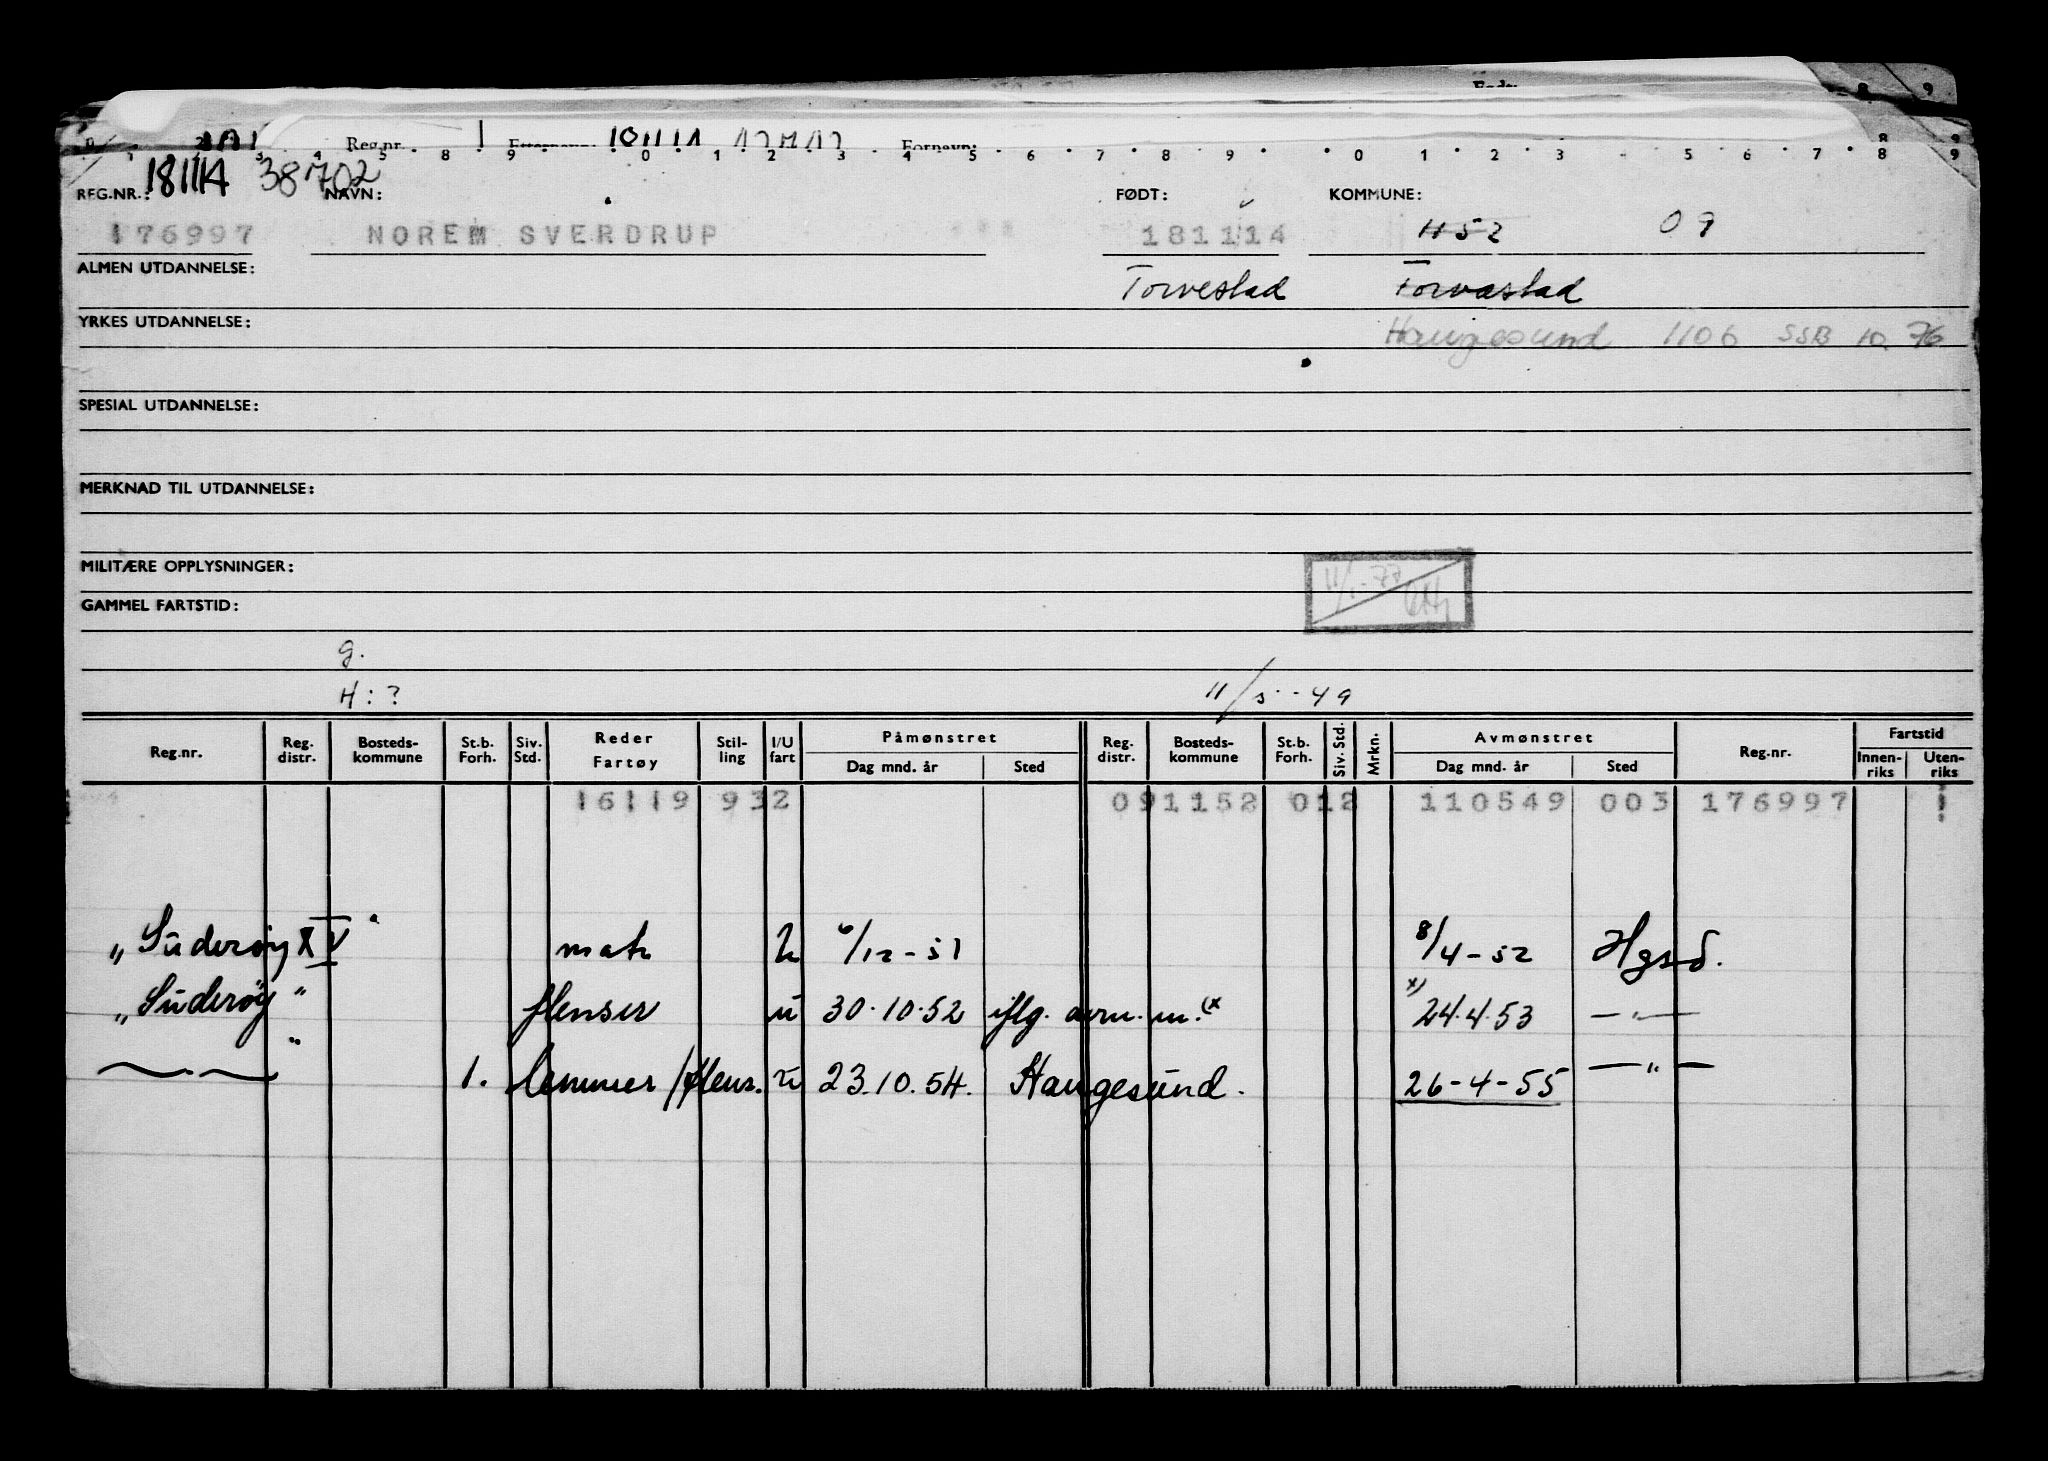 Født:
8 9
Reg.nr. Etternavn: Fornavn:
8 9
1 3 4 5 8 9 0 1 2 3 4 5 6 7 8 9 0 1 2 3 5 6 7 8 9
181114 38702
REG.NR.: NAVN: FØDT: KOMMUNE:
176997 NOREM SVERDRUP 181114 1152 09
ALMEN UTDANNELSE: Torvestad Torvastad
YRKES UTDANNELSE: Haugesund 1106 SSB 10. 76
SPESIAL UTDANNELSE:
MERKNAD TIL UTDANNELSE:
MILITÆRE OPPLYSNINGER: 11/1-77
GAMMEL FARTSTID:
g.
H: ? 11/5-49
Reg.nr. Reg. distr. Bosteds-kommune St.b. Forh. Siv. Std. Reder Fartøy Stil-ling I/U fart Påmønstret Dag mnd. år Sted Reg. distr. Bosteds-kommune St.b. Forh. Siv. Std. Mrkn. Avmønstret Dag mnd. år Sted Reg.nr. Fartstid Innen-riks Uten-riks
16119 932 091152 012 110549 003 176997
"Suderøy XV" matr u 6/12-51 8/4-52 Hgsd.
"Suderøy" flenser u 30.10.52 iflg. avm. m. (x x) 24.4.53 — " —
— " — 1. lemmer/flens. u 23.10.54. Haugesund. 26-4-55 — " —